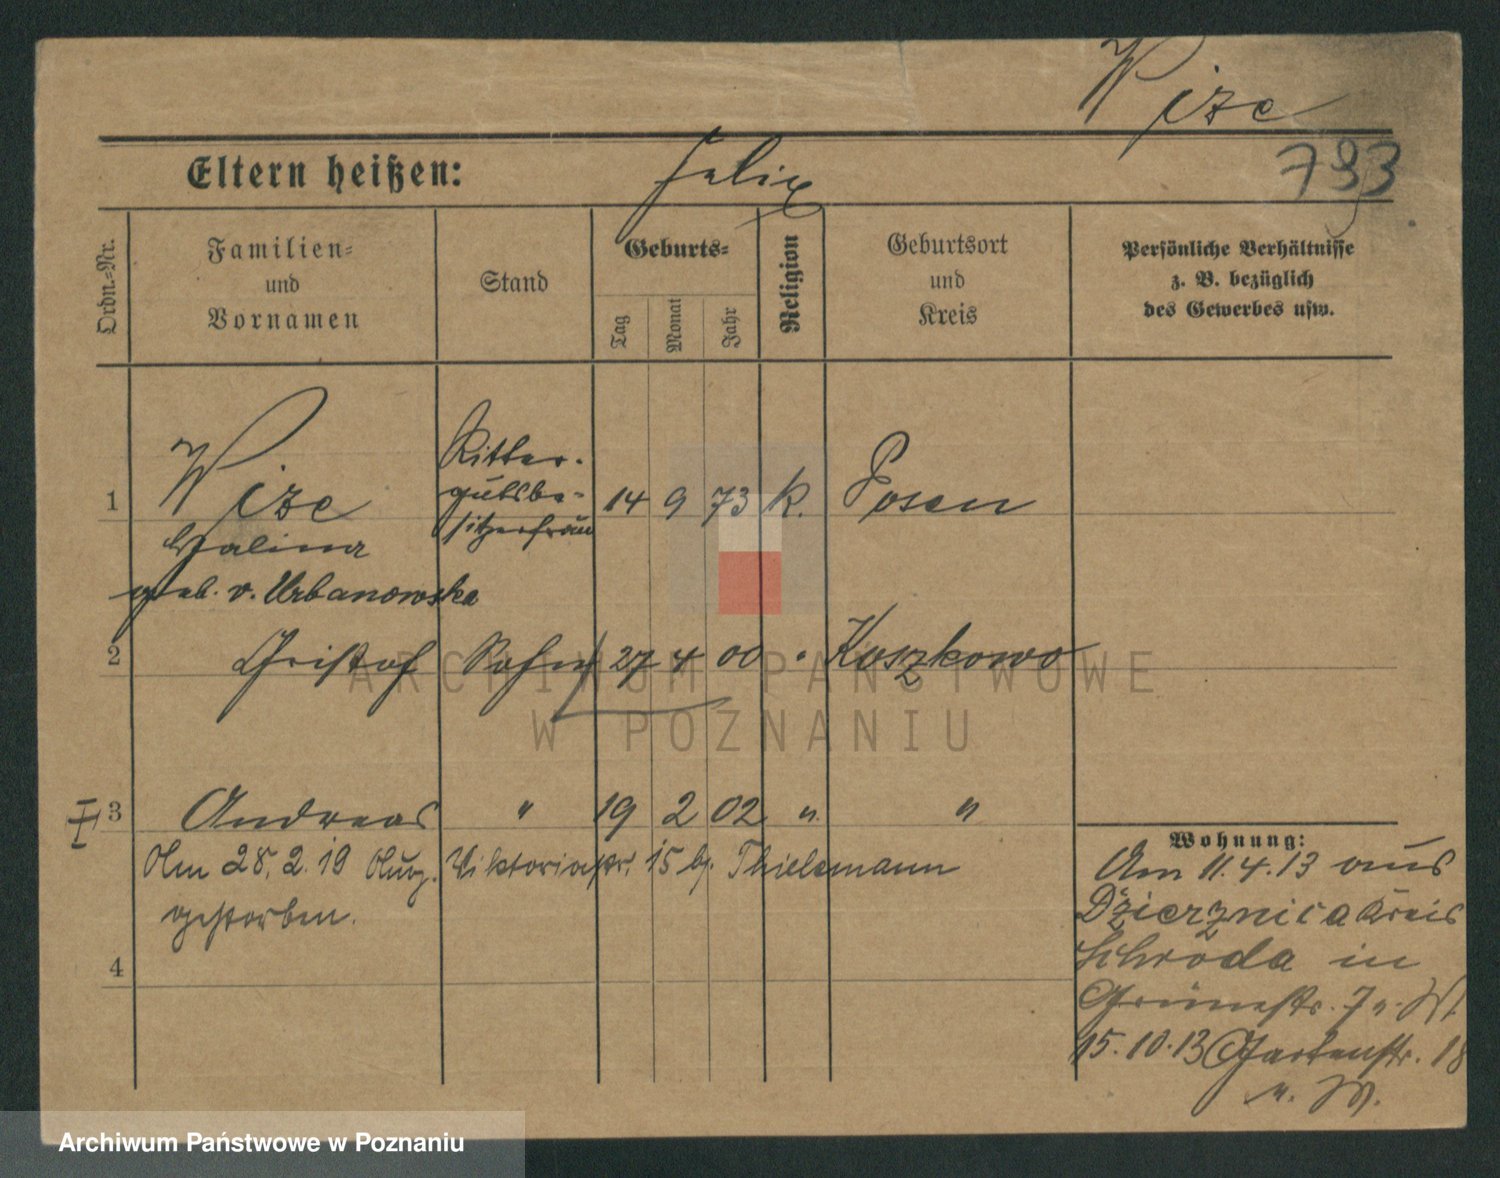 Wize
Eltern heißen: Felix
793
Ordn.-Nr.
Familien-
und
Vornamen
Stand
Geburts-
Tag
Monat
Jahr
Religion
Geburtsort
und
Kreis
Persönliche Verhältnisse
z. B. bezüglich
des Gewerbes usw.
1 Wize Ritter- 14 9 73 k. Posen
gutsbe-
sitzerfrau
Halina
geb. v. Urbanowska
2 Christof Sohn 27 4 00 " Koszkowo
3 Andreas " 19 2 02 " "
Am 28.2.19 Viktoriastr. 15 b. Thielemann
gestorben.
4
Wohnung:
Am 11.4.13 aus
Dzierznica Kreis
Schroda in
Grünestr. 7
15.10.13 Gartenstr. 18
ARCHIWUM PAŃSTWOWE
W POZNANIU
Archiwum Państwowe w Poznaniu